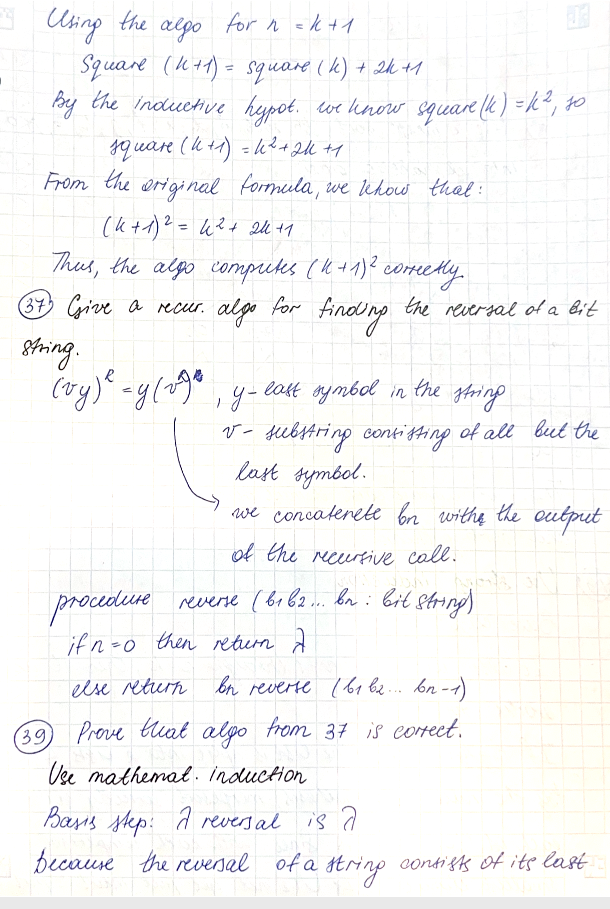 Using the algo for n = k+1
Square (k+1) = square (k) + 2k+1
By the inductive hypot. we know square (k) = k², so
square (k+1) = k² + 2k +1
From the original formula, we know that:
(k+1)² = k² + 2k +1
Thus, the algo computes (k+1)² correctly.
37) Give a recur. algo for finding the reversal of a bit
string.
(vy)ᴿ = y(vᴿ), y - last symbol in the string
v - substring consisting of all but the
last symbol.
we concatenete bn with the output
of the recursive call.
procedure reverse (b1 b2 ... bn : bit string)
if n=0 then return λ
else return bn reverse (b1 b2 ... bn-1)
39) Prove that algo from 37 is correct.
Use mathemat. induction
Basis step: λ reversal is λ
because the reversal of a string consists of its last